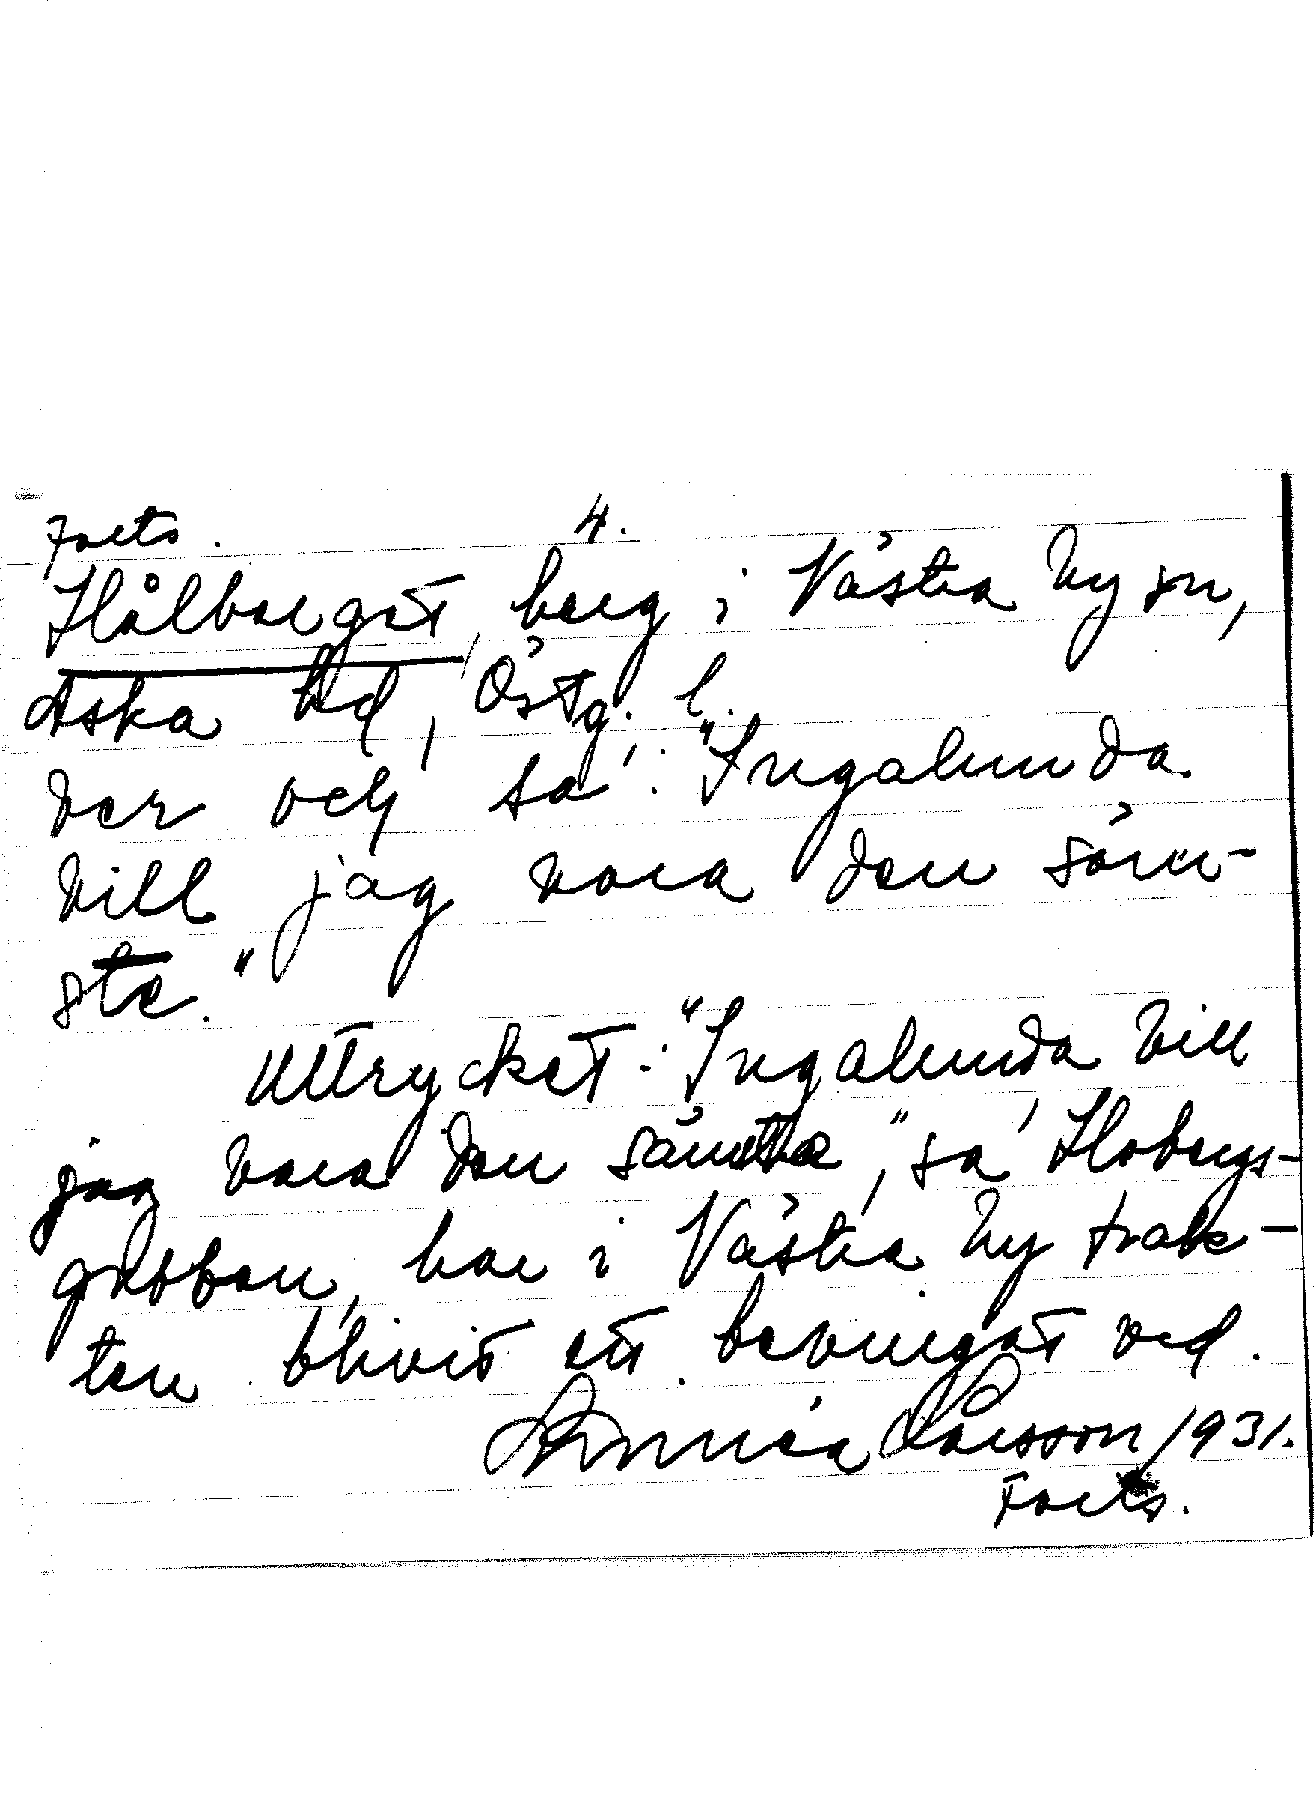 Forts. 4.
Hålberget, berg i Västra Ny sn,
Aska hd, Östg. l.
ver och sa': "Ingalunda
vill jag vara den säm-
ste."
Uttrycket: "Ingalunda vill
jag vara den sämste", sa' Hobergs-
gubben, har i Västra Ny trak-
ten blivit ett bevingat ord.
Linnéa Larsson 1931.
Forts.